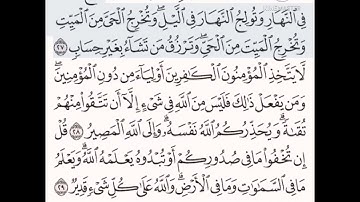 فِى ٱلنَّهَارِ وَتُولِجُ ٱلنَّهَارَ فِى ٱلَّيْلِ وَتُخْرِجُ ٱلْحَىَّ مِنَ ٱلْمَيِّتِ
وَتُخْرِجُ ٱلْمَيِّتَ مِنَ ٱلْحَىِّ وَتَرْزُقُ مَن تَشَآءُ بِغَيْرِ حِسَابٍ ٢٧
لَّا يَتَّخِذِ ٱلْمُؤْمِنُونَ ٱلْكَـٰفِرِينَ أَوْلِيَآءَ مِن دُونِ ٱلْمُؤْمِنِينَ
وَمَن يَفْعَلْ ذَٰلِكَ فَلَيْسَ مِنَ ٱللَّهِ فِى شَىْءٍ إِلَّآ أَن تَتَّقُوا۟ مِنْهُمْ
تُقَىٰةً وَيُحَذِّرُكُمُ ٱللَّهُ نَفْسَهُۥ وَإِلَى ٱللَّهِ ٱلْمَصِيرُ ٢٨ قُلْ
إِن تُخْفُوا۟ مَا فِى صُدُورِكُمْ أَوْ تُبْدُوهُ يَعْلَمْهُ ٱللَّهُ وَيَعْلَمُ
مَا فِى ٱلسَّمَـٰوَٰتِ وَمَا فِى ٱلْأَرْضِ وَٱللَّهُ عَلَىٰ كُلِّ شَىْءٍ قَدِيرٌ ٢٩